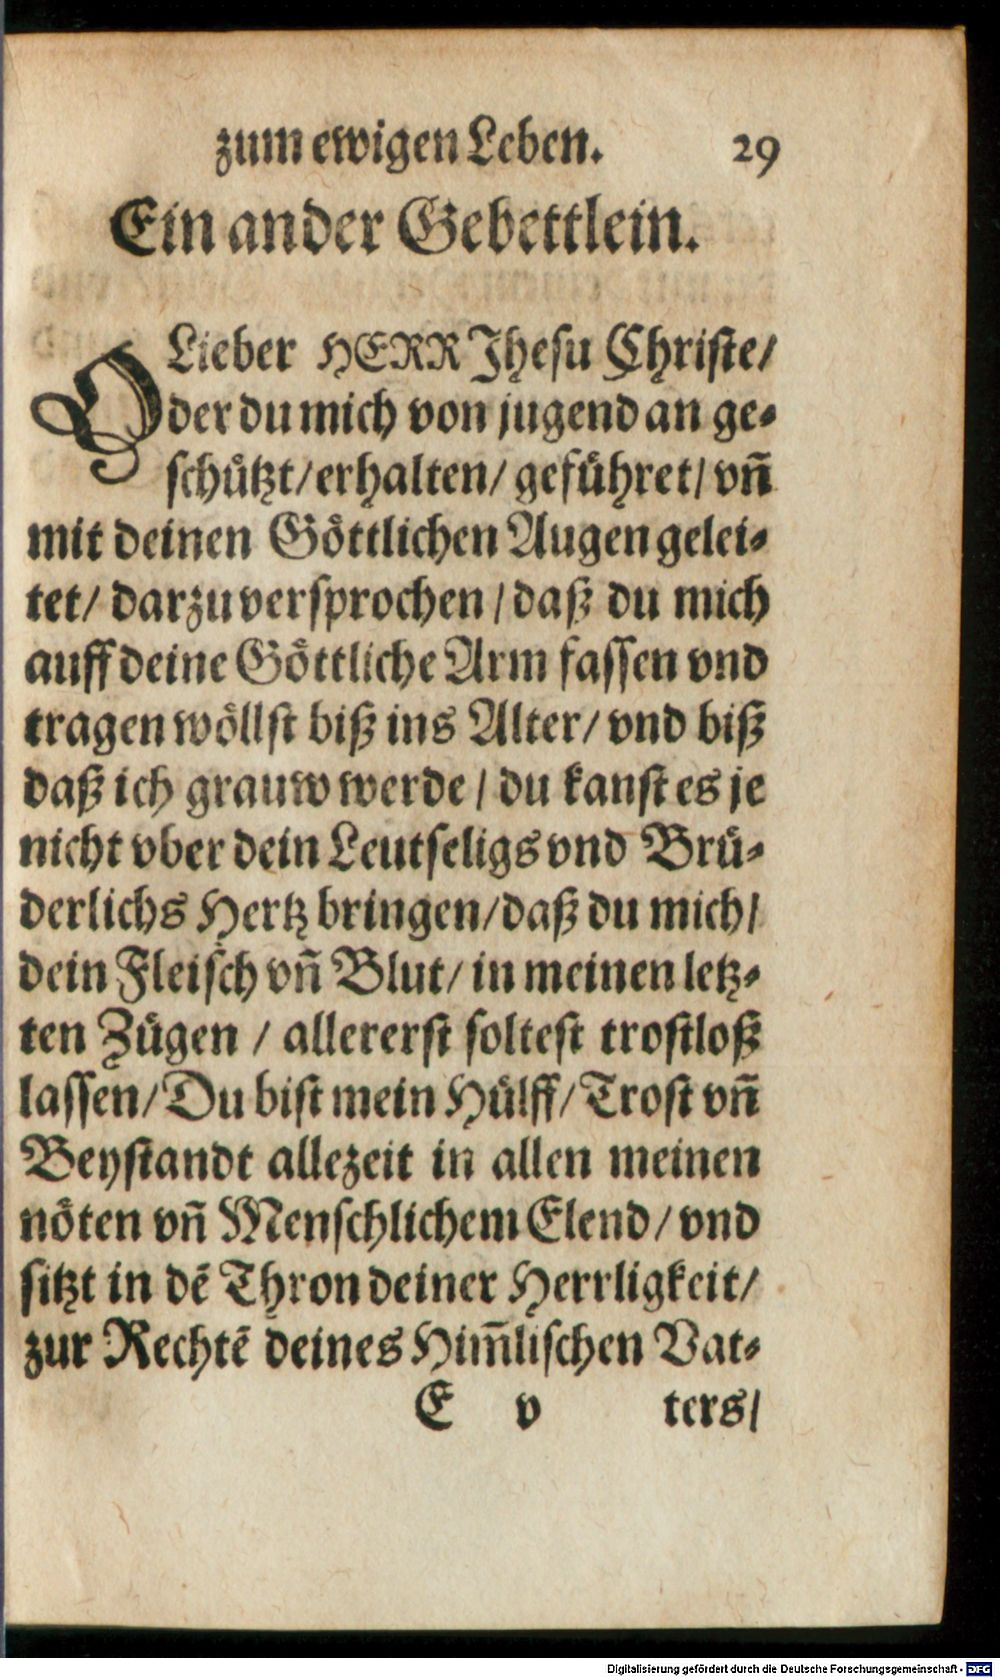 zum ewigen Leben. 29
Ein ander Gebettlein.
O Lieber HERR Jhesu Christe/
der du mich von jugend an ge-
schützt/ erhalten/ geführet/ vn̄
mit deinen Göttlichen Augen gelei-
tet/ darzu versprochen/ daß du mich
auff deine Göttliche Arm fassen vnd
tragen wöllst biß ins Alter/ vnd biß
daß ich grauw werde/ du kanst es je
nicht vber dein Leutseligs vnd Brü-
derlichs Hertz bringen/ daß du mich/
dein Fleisch vn̄ Blut/ in meinen letz-
ten Zügen / allererst soltest trostloß
lassen/ Du bist mein Hülff/ Trost vn̄
Beystandt allezeit in allen meinen
nöten vn̄ Menschlichem Elend/ vnd
sitzt in dē Thron deiner Herrligkeit/
zur Rechtē deines Him̄lischen Vat-
E v ters/
Digitalisierung gefördert durch die Deutsche Forschungsgemeinschaft - DFG